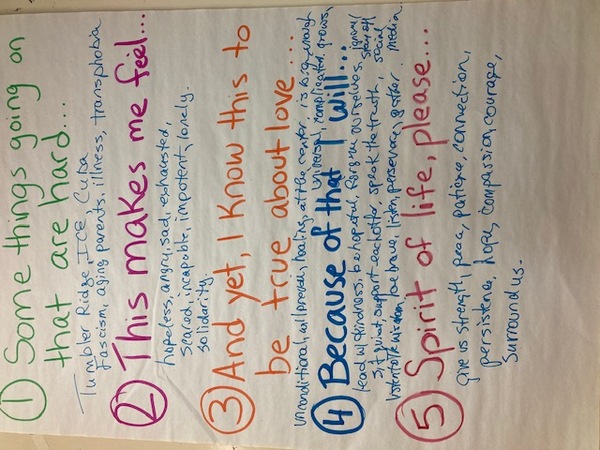 ① Some things going on
that are hard...
Tumbler Ridge, ICE, Cuba
Fascism, aging parents, illness, transphobia
② This makes me feel...
hopeless, angry, sad, exhausted,
scared, incapable, impotent, lonely.
solidarity.
③ And yet, I know this to
be true about love...
unconditional, will prevail, healing, at the center, is big enough
universal, complicated, grows,
④ Because of that I will...
lead w/ kindness, be hopeful, forgive ourselves,
sit quiet, support eachother, speak the truth, stay off social
wisdom, be brave, listen, persevere, gather media.
⑤ Spirit of life, please...
give us strength, peace, patience, connection,
persistence, hope, compassion, courage,
surround us.